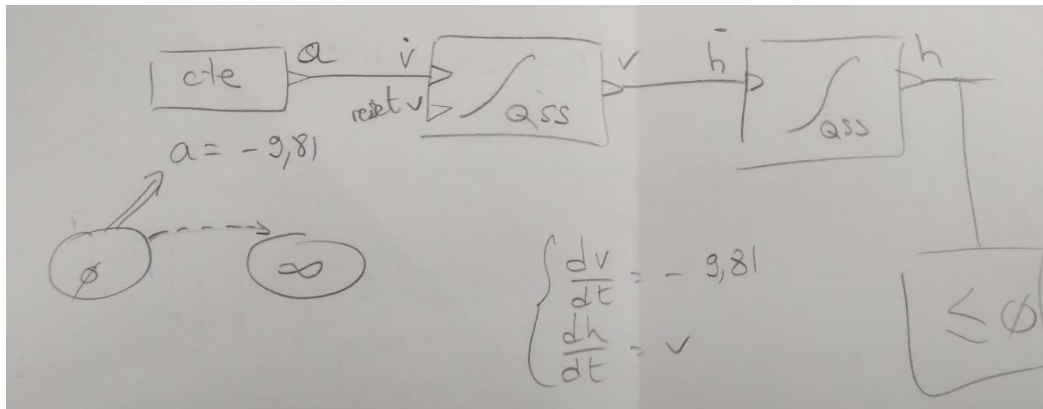 cte
a
v̇
reset v
QSS
v
ḣ
QSS
h
a = - 9,81
ϕ
∞
dv/dt = - 9,81
dh/dt = v
≤ ϕ